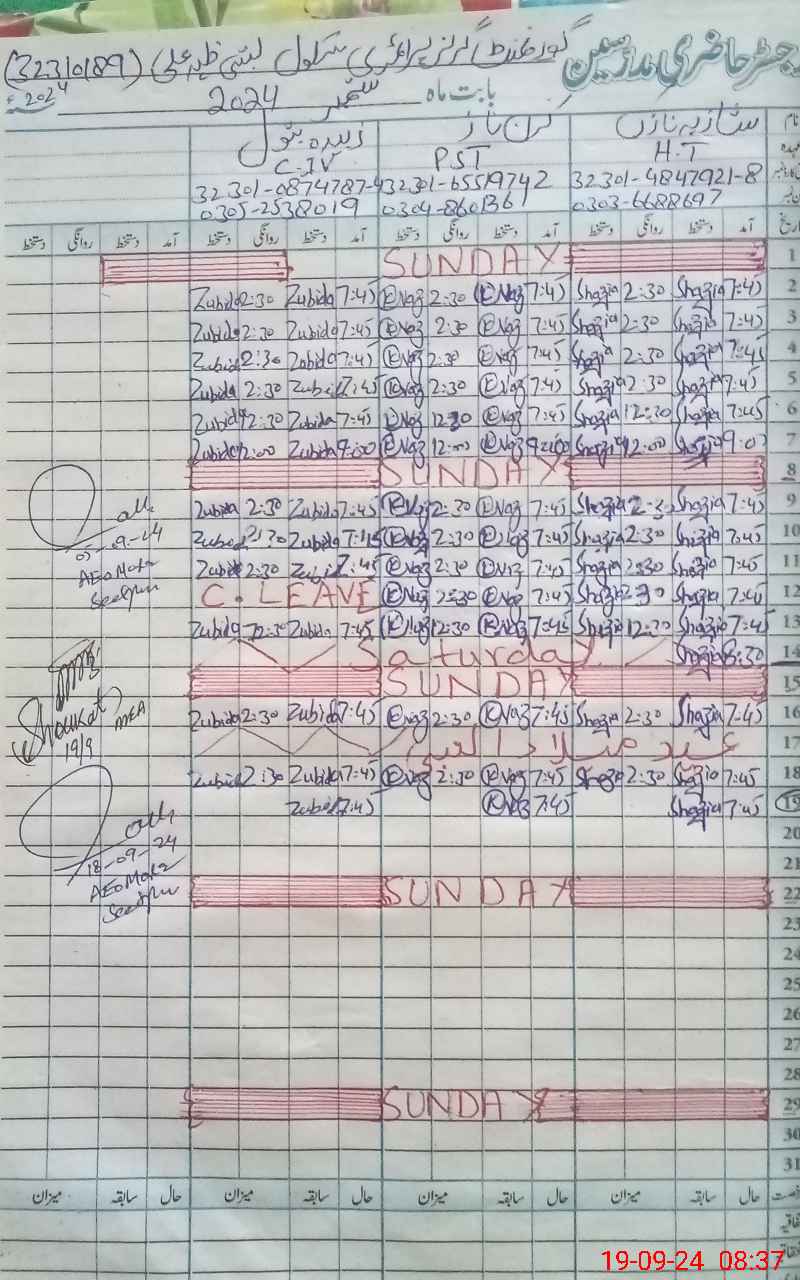 رجسٹر حاضری مدرسین گورنمنٹ گرلز پرائمری سکول بستی (32310189)
بابت ماہ ستمبر 2024 2024ء
نام شازیہ نازں کرن ناز زبیدہ بتول
عہدہ H.T PST C.IV
32301-4847921-8 32301-65519742 32301-0874787-4
0303-6688697 0304-8601361 0305-2538019
تاریخ آمد دستخط روانگی دستخط آمد دستخط روانگی دستخط آمد دستخط روانگی دستخط آمد دستخط روانگی دستخط
1 SUNDAY
2 7:45 Shazia 2:30 Shazia 7:45 K Naz 2:30 K Naz 7:45 Zubida 2:30 Zubida
3 7:45 Shazia 2:30 Shazia 7:45 K Naz 2:30 K Naz 7:45 Zubida 2:30 Zubida
4 7:45 Shazia 2:30 Shazia 7:45 K Naz 2:30 K Naz 7:45 Zubida 2:30 Zubida
5 7:45 Shazia 2:30 Shazia 7:45 K Naz 2:30 K Naz 7:45 Zubida 2:30 Zubida
6 7:45 Shazia 12:30 Shazia 7:45 K Naz 12:30 K Naz 7:45 Zubida 12:30 Zubida
7 9:00 Shazia 12:00 Shazia 9:00 K Naz 12:00 K Naz 9:00 Zubida 12:00 Zubida
8 SUNDAY
9 7:45 Shazia 2:30 Shazia 7:45 K Naz 2:30 K Naz 7:45 Zubida 2:30 Zubida
10 7:45 Shazia 2:30 Shazia 7:45 K Naz 2:30 K Naz 7:45 Zubida 2:30 Zubida
11 7:45 Shazia 2:30 Shazia 7:45 K Naz 2:30 K Naz 7:45 Zubida 2:30 Zubida
12 7:45 Shazia 2:30 Shazia 7:45 K Naz 2:30 K Naz C.LEAVE
13 7:45 Shazia 12:30 Shazia 7:45 K Naz 12:30 K Naz 7:45 Zubida 12:30 Zubida
14 8:30 Shazia Saturday
15 SUNDAY
16 7:45 Shazia 2:30 Shazia 7:45 K Naz 2:30 K Naz 7:45 Zubida 2:30 Zubida
17 عید میلاد النبی
18 7:45 Shazia 2:30 Shazia 7:45 K Naz 2:30 K Naz 7:45 Zubida 2:30 Zubida
19 7:45 Shazia 7:45 K Naz 7:45 Zubida
20
21
22 SUNDAY
23
24
25
26
27
28
29 SUNDAY
30
31
حال سابقہ میزان حال سابقہ میزان حال سابقہ میزان حال سابقہ میزان
05-09-24
AEO
Shoukat MEA
19/9
18-09-24
AEO
19-09-24 08:37